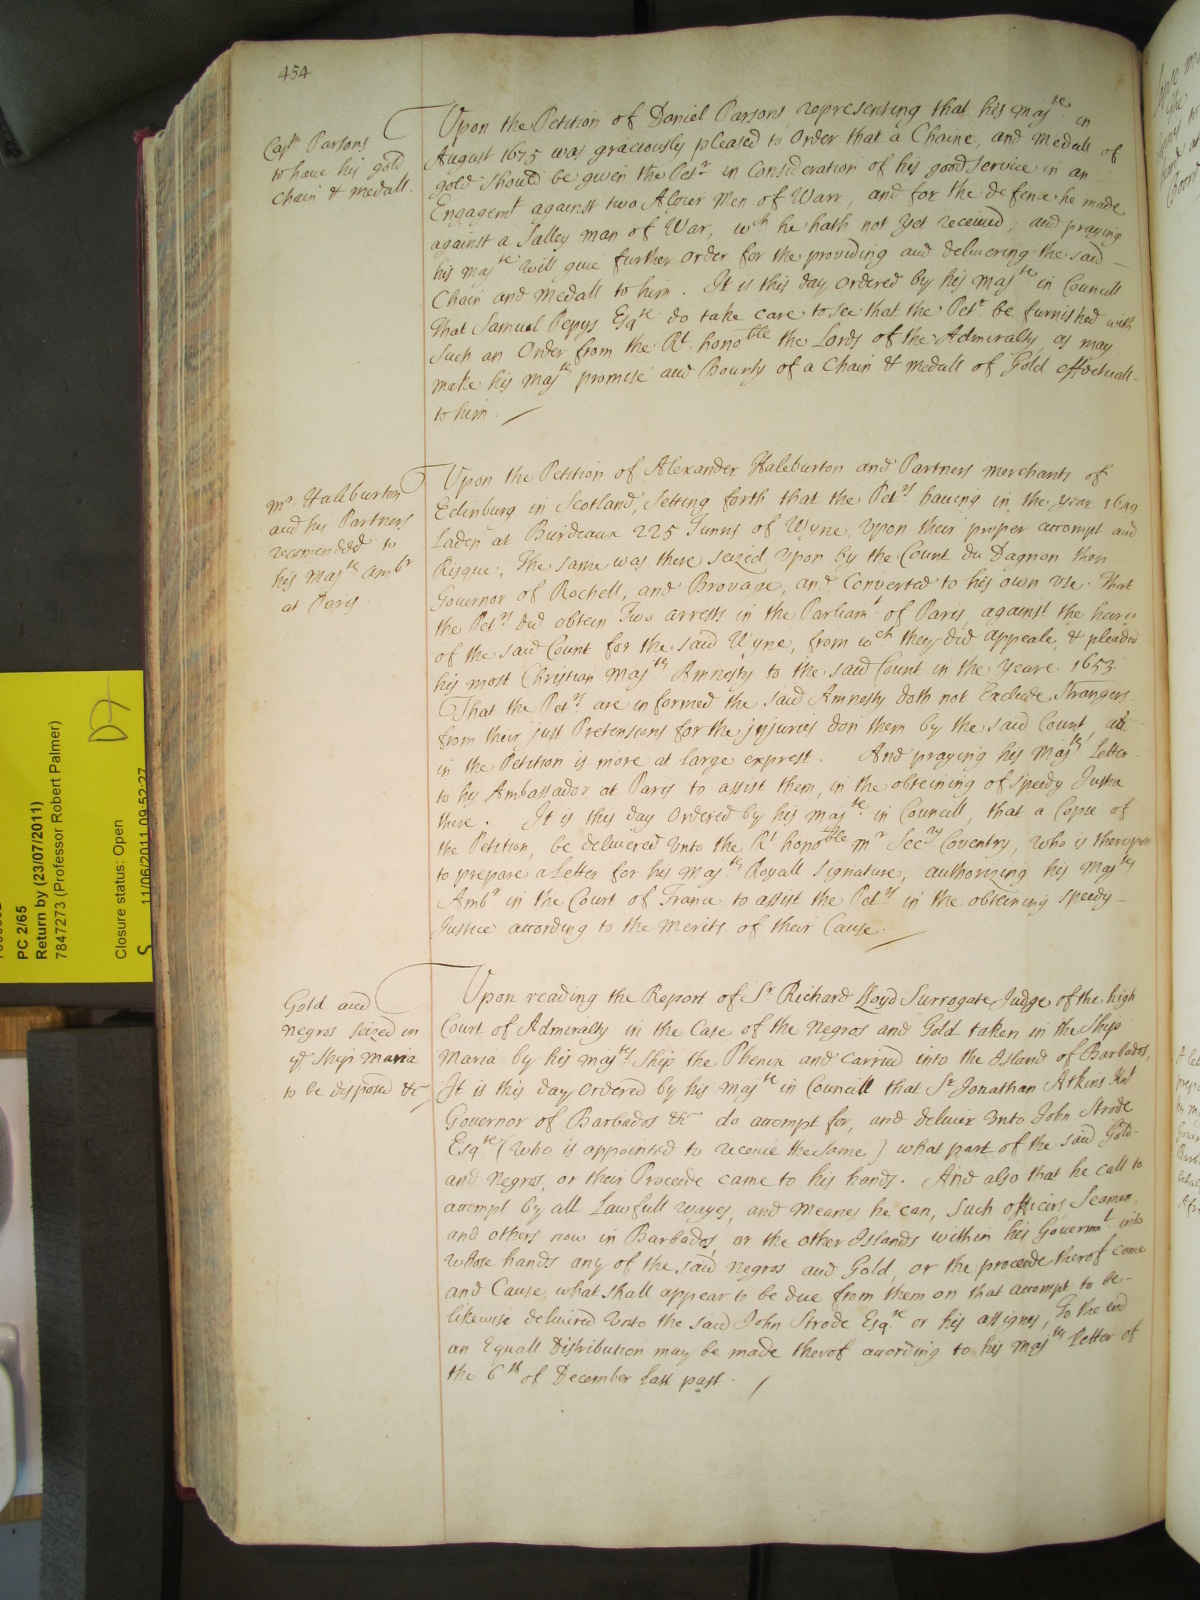 454
Capt Parsons
to have his gold
chain & medall.
Upon the Petition of Daniel Parsons representing that his Majtie in
August 1675 was graciously pleased to Order that a Chaine, and Medall of
gold should be given the Petr in Consideration of his good service in an
Engagemt against two Algier Men of Warr, and for the defence he made
against a Salley man of War, wch he hath not yet received, and praying
his Majtie will give further order for the providing and delivering the said
Chain and Medall to him. It is this day Ordered by his Majtie in Councill
That Samuel Pepys Esqre do take care to see that the Petr be furnished with
Such an Order from the Rt honoble the Lords of the Admiralty as may
make his Majties promise and Bounty of a Chain & Medall of Gold effectuall
to him.
Mr Haleburton
and his Partners
recomended to
his Majties Ambr
at Paris
Upon the Petition of Alexander Haleburton and Partners Merchants of
Edinburg in Scotland, Setting forth that the Petrs having in the year
Laden at Burdeaux 225 Tunns of Wyne, Upon their proper accompt and
Risque, The same was there seized upon by the Count du Dagnon then
Governor of Rochell, and Brovage, and Converted to his own use. That
the Petrs did obtein Two arrests in the Parliamt of Paris, against the heirs
of the said Count for the said Wyne, from wch they did appeale, & pleaded
his most Christian Majtys Amnesty to the said Count in the Yeare 1653
That the Petrs are informed the said Amnesty doth not Exclude Strangers
from their just Pretensions for the injuries don them by the said Count, as
in the Petition is more at large exprest. And praying his Majtys Letter
to his Ambassador at Paris to assist them, in the obteining of speedy Justice
there. It is this day Ordered by his Majtie in Councill, that a Copie of
the Petition, be delivered Unto the Rt honoble Mr Secry Coventry, who is thereupon
to prepare a Letter for his Majtys Royall Signature, authorizing his Majtys
Ambr in the Court of France to assist the Petrs in the obteining speedy
Justice according to the Merits of their Cause.
Gold and
Negros seized in
ye Ship Maria
to be disposed &c
Upon reading the Report of Sr Richard Lloyd Surrogate Judge of the high
Court of Admiralty in the Case of the Negros and Gold taken in the Ship
Maria by his Majtys Ship the Phenix and Carried into the Island of Barbados,
It is this day Ordered by his Majtie in Councill that Sr Jonathan Atkins Knt
Governor of Barbados &c do accompt for, and deliver Unto John Strode
Esqre (who is appointed to receive the same) what part of the said Gold
and Negros, or their Proceede came to his hands. And also that he call to
accompt by all Lawfull wayes, and Meanes he can, Such officers Seamen
and others now in Barbados, or the other Islands within his Governmt into
whose hands any of the said Negros and Gold, or the proceede therof came
and Cause, what shall appear to be due from them on that accompt to be
likewise delivered Unto the said John Strode Esqre or his assignes, To the end
an Equall Distribution may be made therof according to his Majtys Letter of
the 6th of December Last past.
PC 2/65
Return by (23/07/2011)
7847273 (Professor Robert Palmer)
Closure status: Open
11/06/2011 09:52:27
S